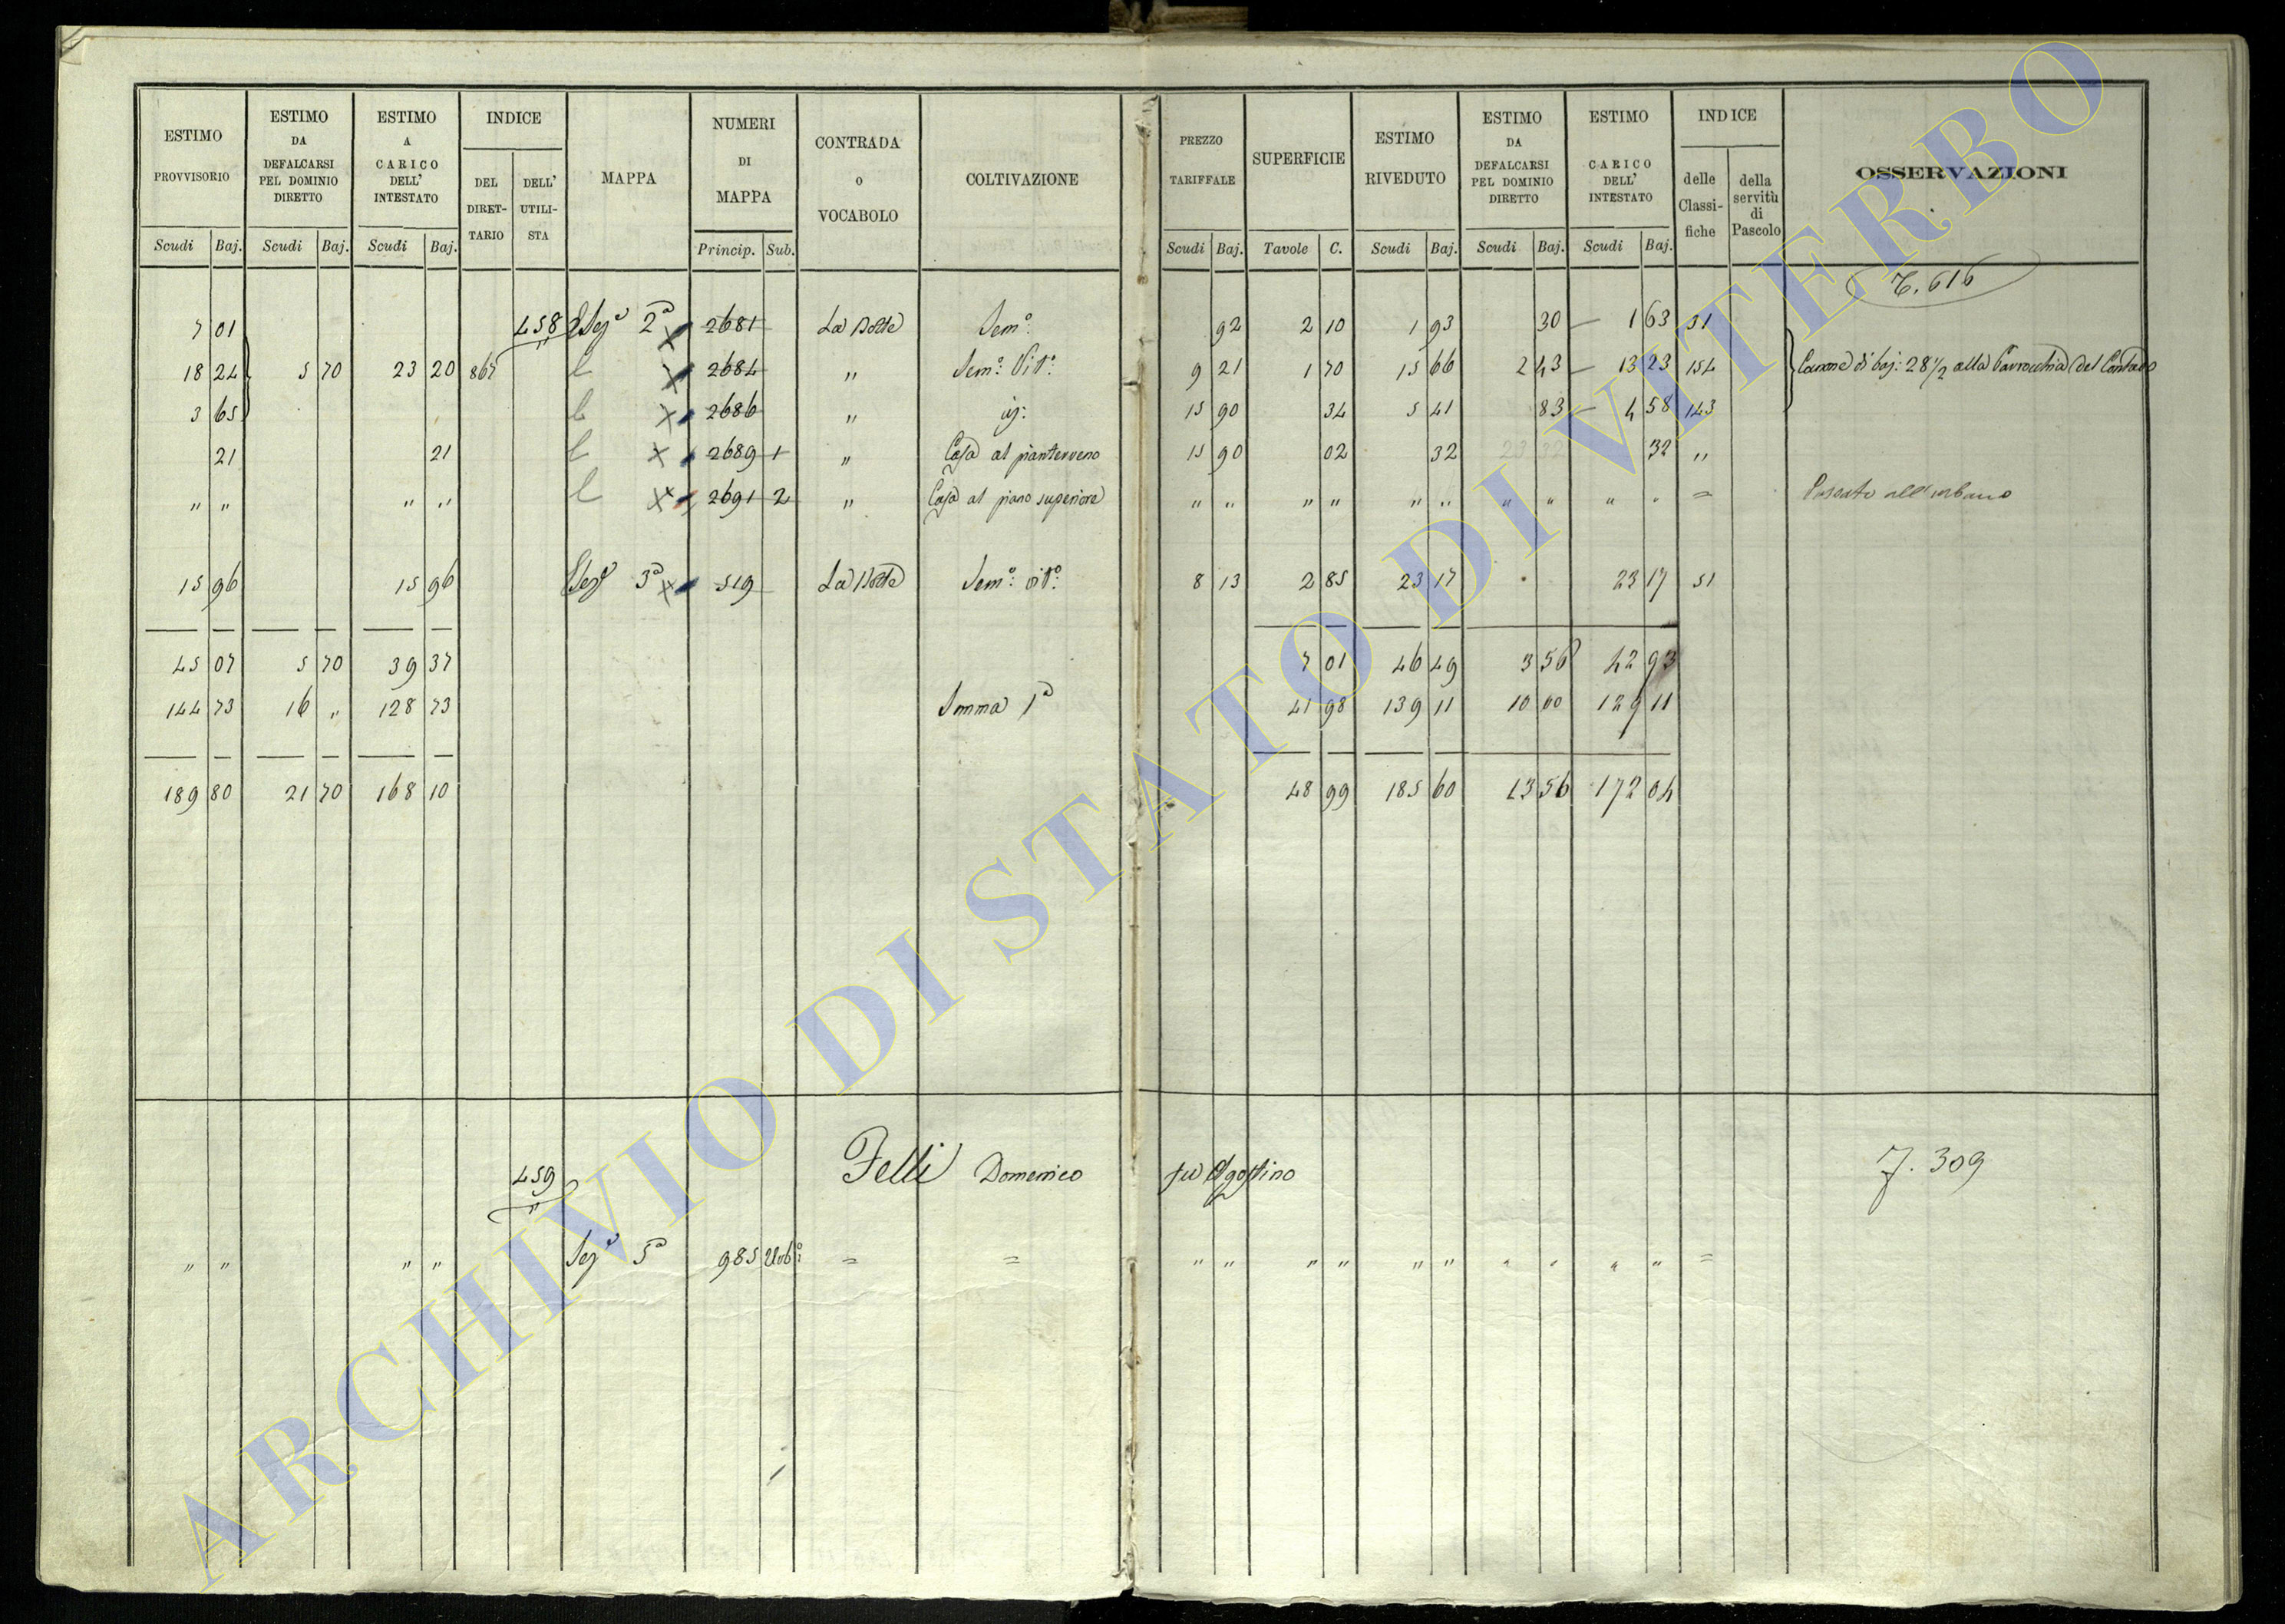 ESTIMO PROVVISORIO Scudi Baj. | ESTIMO DA DEFALCARSI PEL DOMINIO DIRETTO Scudi Baj. | ESTIMO A CARICO DELL' INTESTATO Scudi Baj. | INDICE DEL DIRET-TARIO DELL' UTILI-STA | MAPPA | NUMERI DI MAPPA Princip. Sub. | CONTRADA o VOCABOLO | COLTIVAZIONE | PREZZO TARIFFALE Scudi Baj. | SUPERFICIE Tavole C. | ESTIMO RIVEDUTO Scudi Baj. | ESTIMO DA DEFALCARSI PEL DOMINIO DIRETTO Scudi Baj. | ESTIMO CARICO DELL' INTESTATO Scudi Baj. | INDICE delle Classi-fiche della servitù di Pascolo | OSSERVAZIONI
7 01 458 2a 2681 La Botte Semo: 92 2 10 1 93 30 1 63 51 616
18 24 5 70 23 20 867 2684 " Semo: Vito: 9 21 1 70 15 66 2 43 13 23 154 Canone di baj: 28 1/2 alla Parrocchia del
3 65 2686 " 15 90 34 5 41 83 4 58 143
21 21 2689 1 " Casa al pianterreno 15 90 02 32 32 "
" " " " 2691 2 " Casa al piano superiore " " " " " " " " " " = all'urbano
15 96 15 96 Seze 3a 519 La Botte Semo: vito: 8 13 2 85 23 17 23 17 51
45 07 5 70 39 37 7 01 46 49 3 56 42 93
144 73 16 " 128 73 Somma 1a 41 98 139 11 10 00 129 11
189 80 21 70 168 10 48 99 185 60 13 56 172 04
459 Felli Domenico fu Agostino 309
" " " " Seze 5a 985 Urbo: = = " " " " " " " " " " =
ARCHIVIO DI STATO DI VITERBO